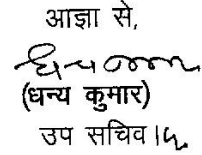 आज्ञा से,
(धन्य कुमार)
उप सचिव।